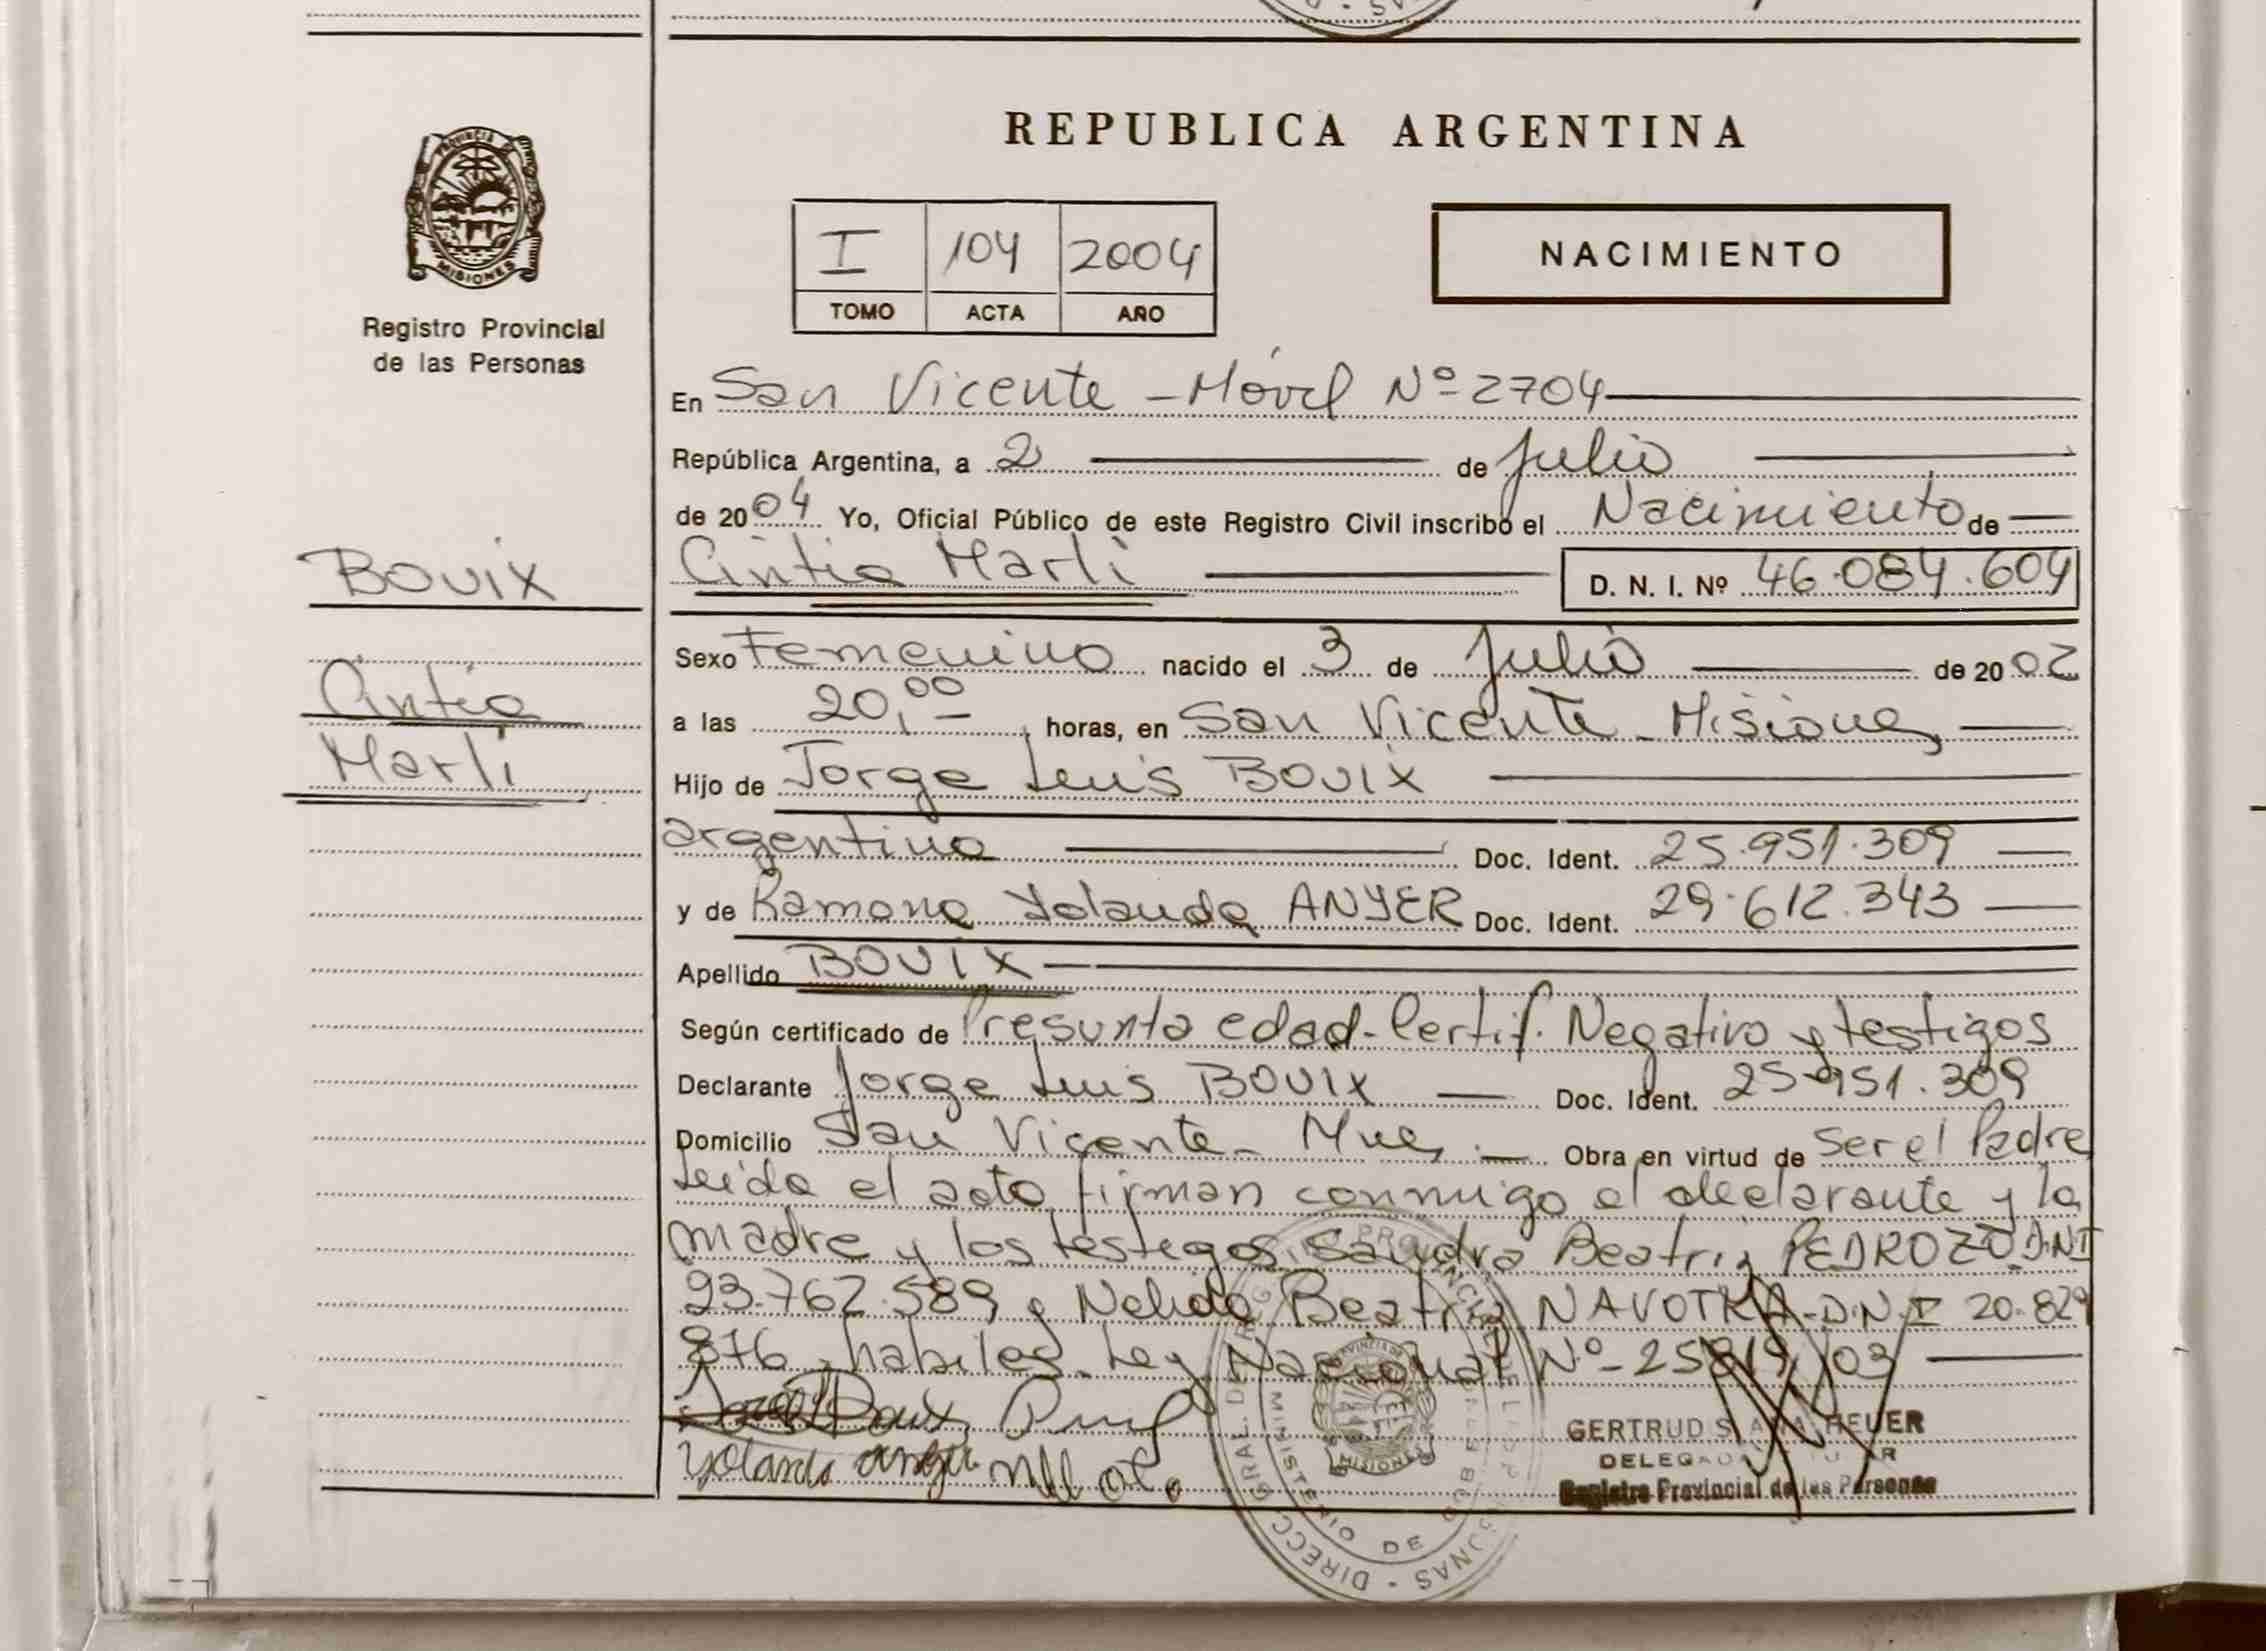 REPUBLICA ARGENTINA
PROVINCIA DE
MISIONES
Registro Provincial
de las Personas
I 104 2004
TOMO ACTA AÑO
NACIMIENTO
En San Vicente - Móvil Nº 2704
República Argentina, a 2 de julio
de 2004 Yo, Oficial Público de este Registro Civil inscribo el Nacimiento de
Cintia Marli D. N. I. Nº 46.084.604
BOUIX
Cintia
Marli
Sexo Femenino nacido el 3 de Julio de 2002
a las 20,00 horas, en San Vicente - Misiones
Hijo de Jorge Luis BOUIX
argentino Doc. Ident. 25.951.309
y de Ramona Yolanda ANYER Doc. Ident. 29.612.343
Apellido BOUIX
Según certificado de Presunta edad - Certif. Negativo y testigos
Declarante Jorge Luis BOUIX Doc. Ident. 25.951.309
Domicilio San Vicente - Mnes. Obra en virtud de ser el Padre
Leída el acta firman conmigo el declarante y la
madre y los testigos Sandra Beatriz PEDROZO D.N.I
93.762.589 y Nelida Beatriz NAVOTKA - D.N.I 20.829
876, habiles. Ley Nacional Nº 25819/03
Yolanda
GERTRUD HEUER
DELEGADA
Registro Provincial de las Personas
MISIONES